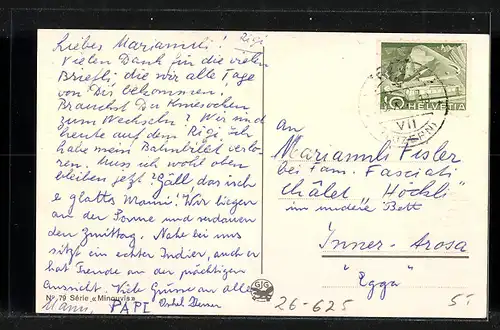 Liebes Mariannli! Rigi
Vielen Dank für die vielen
Briefli die wir alle Tage
von Dir bekommen!
Brauchst Du Kniesocken
zum Wechseln? Wir sind
heute auf dem Rigi, ich
habe mein Bahnbillet verlo-
ren. Muss ich wohl oben
bleiben jetzt? Gäll, das isch
e glatts Mami! Wir liegen
an der Sonne und verdauen
den Zmittag. Nahe bei uns
sitzt ein echter Indier, auch er
hat Freude an der prächtigen
Aussicht. Viele Grüsse an alle
Mami, PAPI
No 79 Série «Minouvis»
GG
10 HELVETIA
VII
(LUZERN)
An
Mariannli Fisler
bei Fam. Fasciati
Châlet "Höckli"
im undere Bett
Inner-Arosa
"Egga"
26-625
5.-